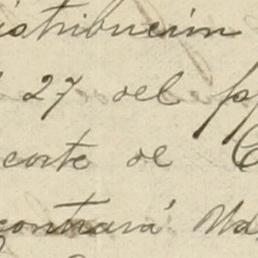 istribucion
27 del pp
corte de C
contrará Ud.